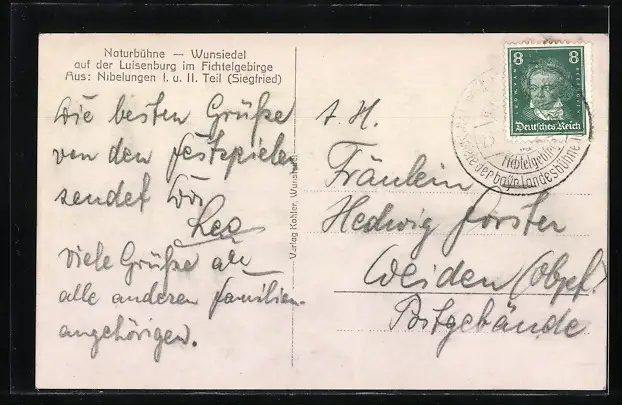 Naturbühne — Wunsiedel
auf der Luisenburg im Fichtelgebirge
Aus: Nibelungen I. u. II. Teil (Siegfried)
Die besten Grüße
von den Festspielen
sendet Dir
Leo
Viele Grüße an
alle anderen Familien-
angehörigen.
Verlag Kohler, Wunsiedel
s. H.
Fräulein
Hedwig Forster
Weiden (Obpf.)
Postgebäude
8 8
Deutsches Reich
Fichtelgebirge
der bayr. Landesbühne